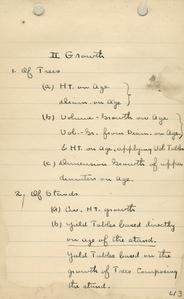 II Growth
1. Of Trees
(a) Ht. on Age
Diam. on Age
(b) Volume - Growth on Age
Vol. - Gr. from Diam. on Age
& Ht. on Age, applying Vol. Tables
(c) Dimension Growth of upper
diameters on Age.
2. Of Stands
(a) Av. Ht. growth
(b) Yield Tables based directly
on age of the stand.
Yield Tables based on the
growth of Trees composing
the stand.
43